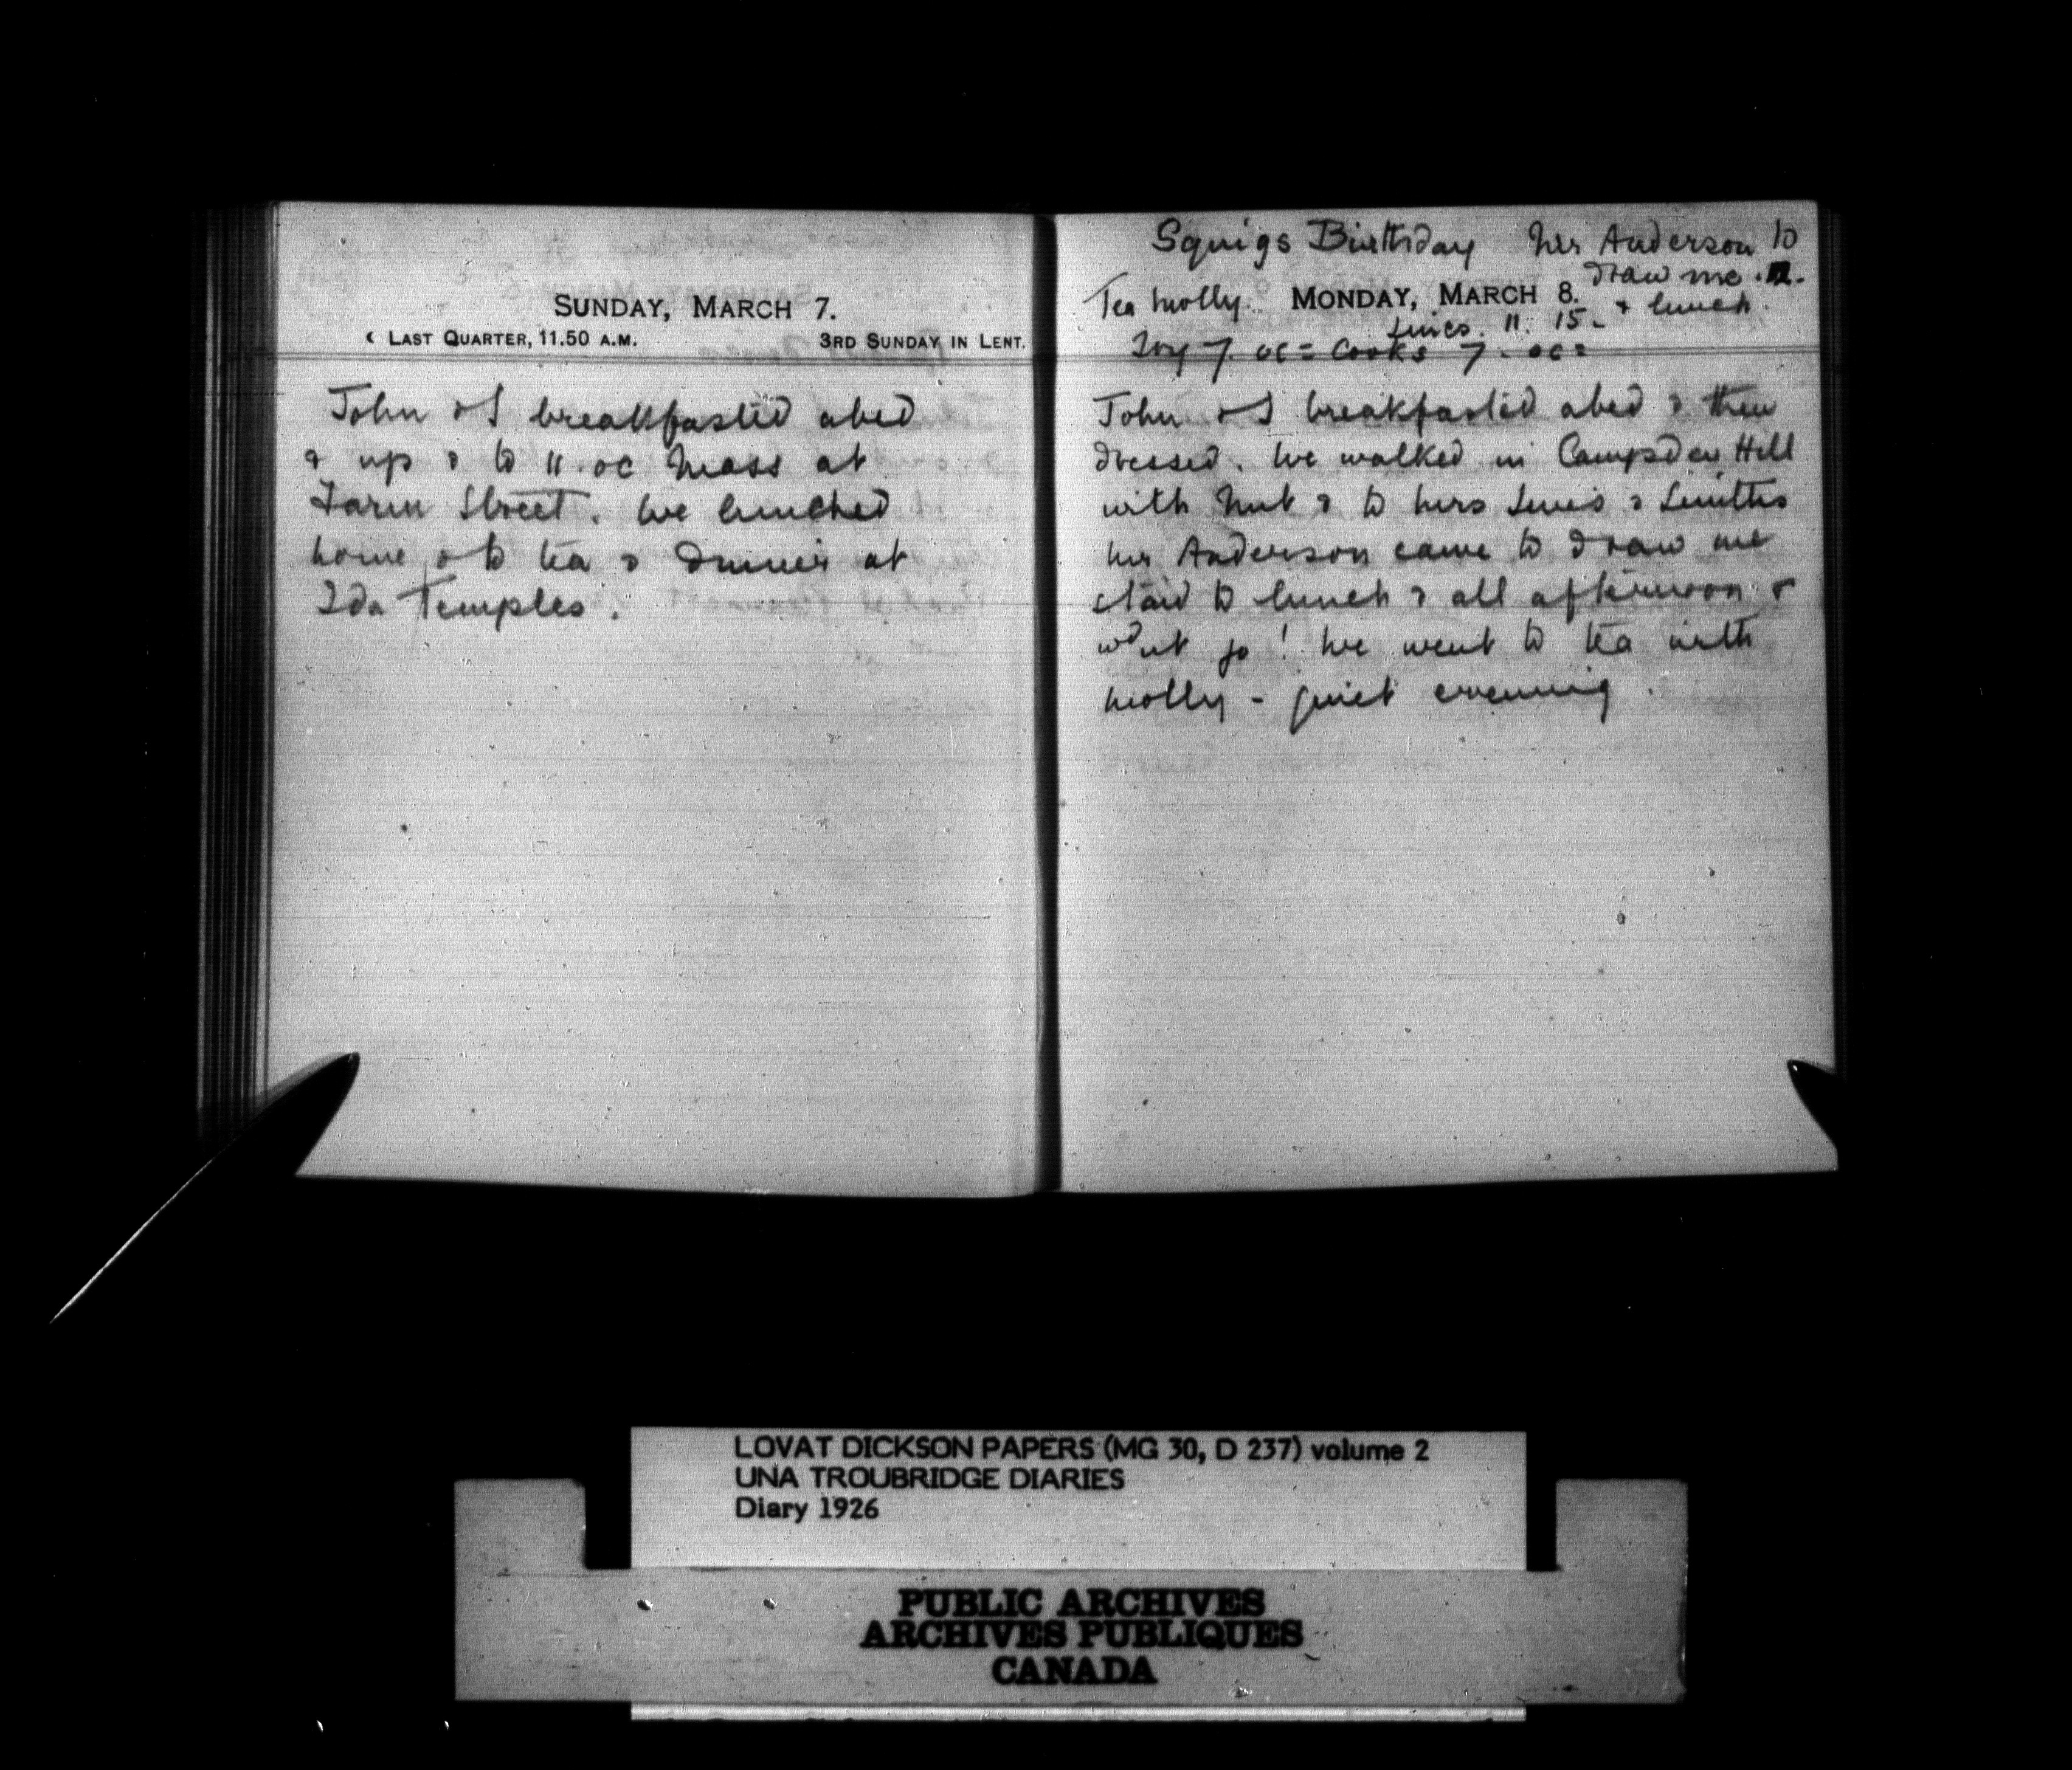 SUNDAY, MARCH 7.
☾ LAST QUARTER, 11.50 A.M. 3RD SUNDAY IN LENT.
John & I breakfasted abed
& up & to 11.oc Mass at
Farm Street. We lunched
home & to tea & dinner at
Ida Temples.
Squigs Birthday Mrs Anderson to
draw me.
Tea Molly. MONDAY, MARCH 8. & lunch.
11. 15-
7. oc = Cooks 7. oc =
John & I breakfasted abed & then
dressed. We walked in Campsden Hill
with Nut & to Mrs & Smiths
Mrs Anderson came to draw me
staid to lunch & all afternoon &
wdnt go! We went to tea with
Molly - quiet evening.
LOVAT DICKSON PAPERS (MG 30, D 237) volume 2
UNA TROUBRIDGE DIARIES
Diary 1926
PUBLIC ARCHIVES
ARCHIVES PUBLIQUES
CANADA